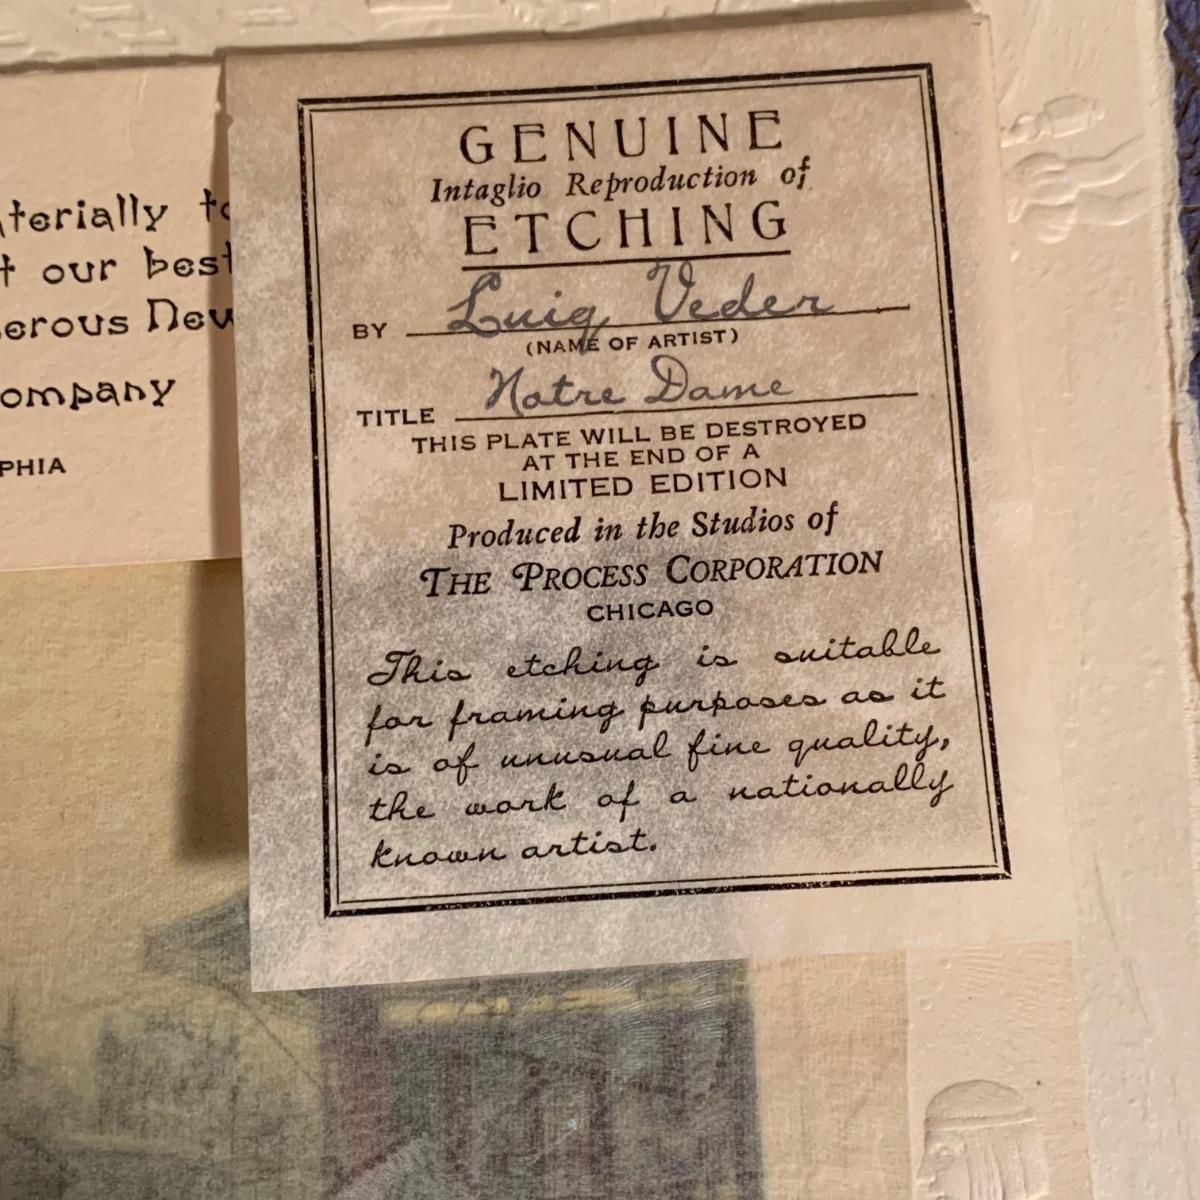 terially
t our best
erous New
ompany
PHIA
GENUINE
Intaglio Reproduction of
ETCHING
BY Luig Veder
(NAME OF ARTIST)
TITLE Notre Dame
THIS PLATE WILL BE DESTROYED
AT THE END OF A
LIMITED EDITION
Produced in the Studios of
THE PROCESS CORPORATION
CHICAGO
This etching is suitable
for framing purposes as it
is of unusual fine quality,
the work of a nationally
known artist.